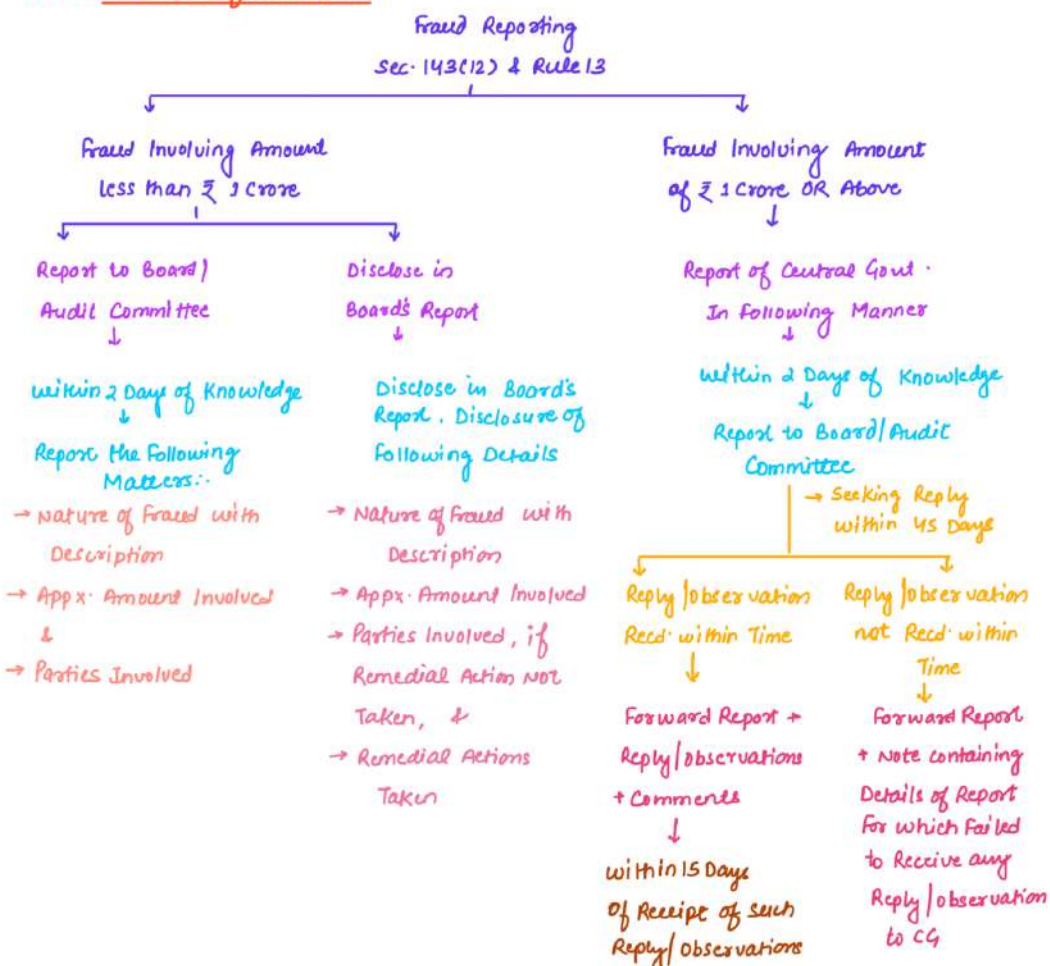 Fraud Reporting
Sec. 143(12) & Rule 13
Fraud Involving Amount
less than ₹ 1 Crore
Report to Board/
Audit Committee
within 2 Days of Knowledge
Report the Following
Matters:-
→ Nature of Fraud with
Description
→ Appx. Amount Involved
&
→ Parties Involved
Disclose in
Board's Report
Disclose in Board's
Report. Disclosure of
Following Details
→ Nature of Fraud with
Description
→ Appx. Amount Involved
→ Parties Involved, if
Remedial Action NOT
Taken, &
→ Remedial Actions
Taken
Fraud Involving Amount
of ₹ 1 Crore OR Above
Report of Central Govt.
In Following Manner
within 2 Days of Knowledge
Report to Board/Audit
Committee
→ Seeking Reply
within 45 Days
Reply/observation
Recd. within Time
Forward Report +
Reply/observations
+ Comments
within 15 Days
of Receipt of such
Reply/observations
Reply/observation
not Recd. within
Time
Forward Report
+ Note containing
Details of Report
For which Failed
to Receive any
Reply/observation
to CG